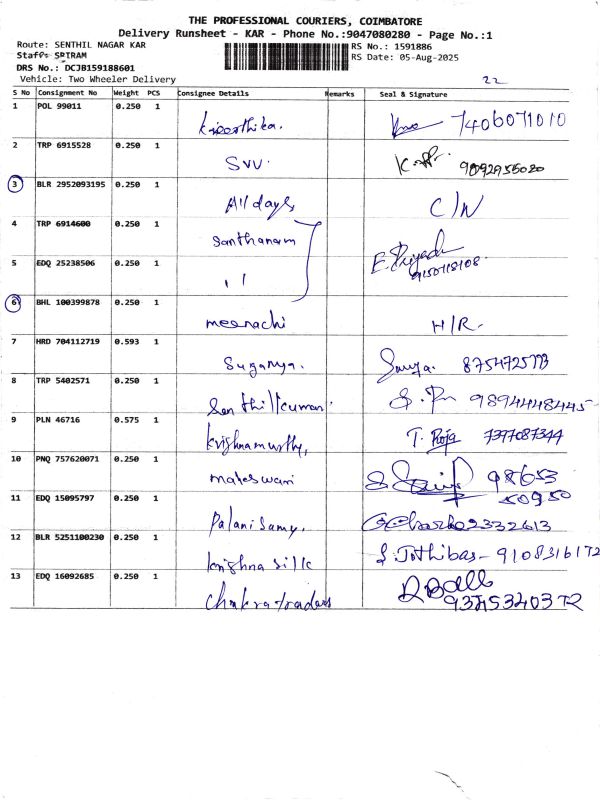 THE PROFESSIONAL COURIERS, COIMBATORE
Delivery Runsheet - KAR - Phone No.:9047080280 - Page No.:1
Route: SENTHIL NAGAR KAR
RS No.: 1591886
Staff: SRIRAM
RS Date: 05-Aug-2025
DRS No.: DCJB159188601
Vehicle: Two Wheeler Delivery
22
S No Consignment No Weight PCS Consignee Details Remarks Seal & Signature
1 POL 99011 0.250 1
Kreerthika. 7406071010
2 TRP 6915528 0.250 1
SVV. 9092955020
3 BLR 2952093195 0.250 1
All days C/N
4 TRP 6914600 0.250 1
Santhanam E. Priyadh
9150118108
5 EDQ 25238506 0.250 1
11
6 BHL 100399878 0.250 1
meenachi H/R.
7 HRD 704112719 0.593 1
Suganya. 8754725
8 TRP 5402571 0.250 1
Senthilkumar 9894448445
9 PLN 46716 0.575 1
Krishnamurthy, T. Roja 7397087344
10 PNQ 757620071 0.250 1
maheswari 98653
50950
11 EDQ 15095797 0.250 1
Palanisamy. 02332613
12 BLR 5251100230 0.250 1
krishna silk S. Jothibas - 9108316172
13 EDQ 16092685 0.250 1
Chakra traders